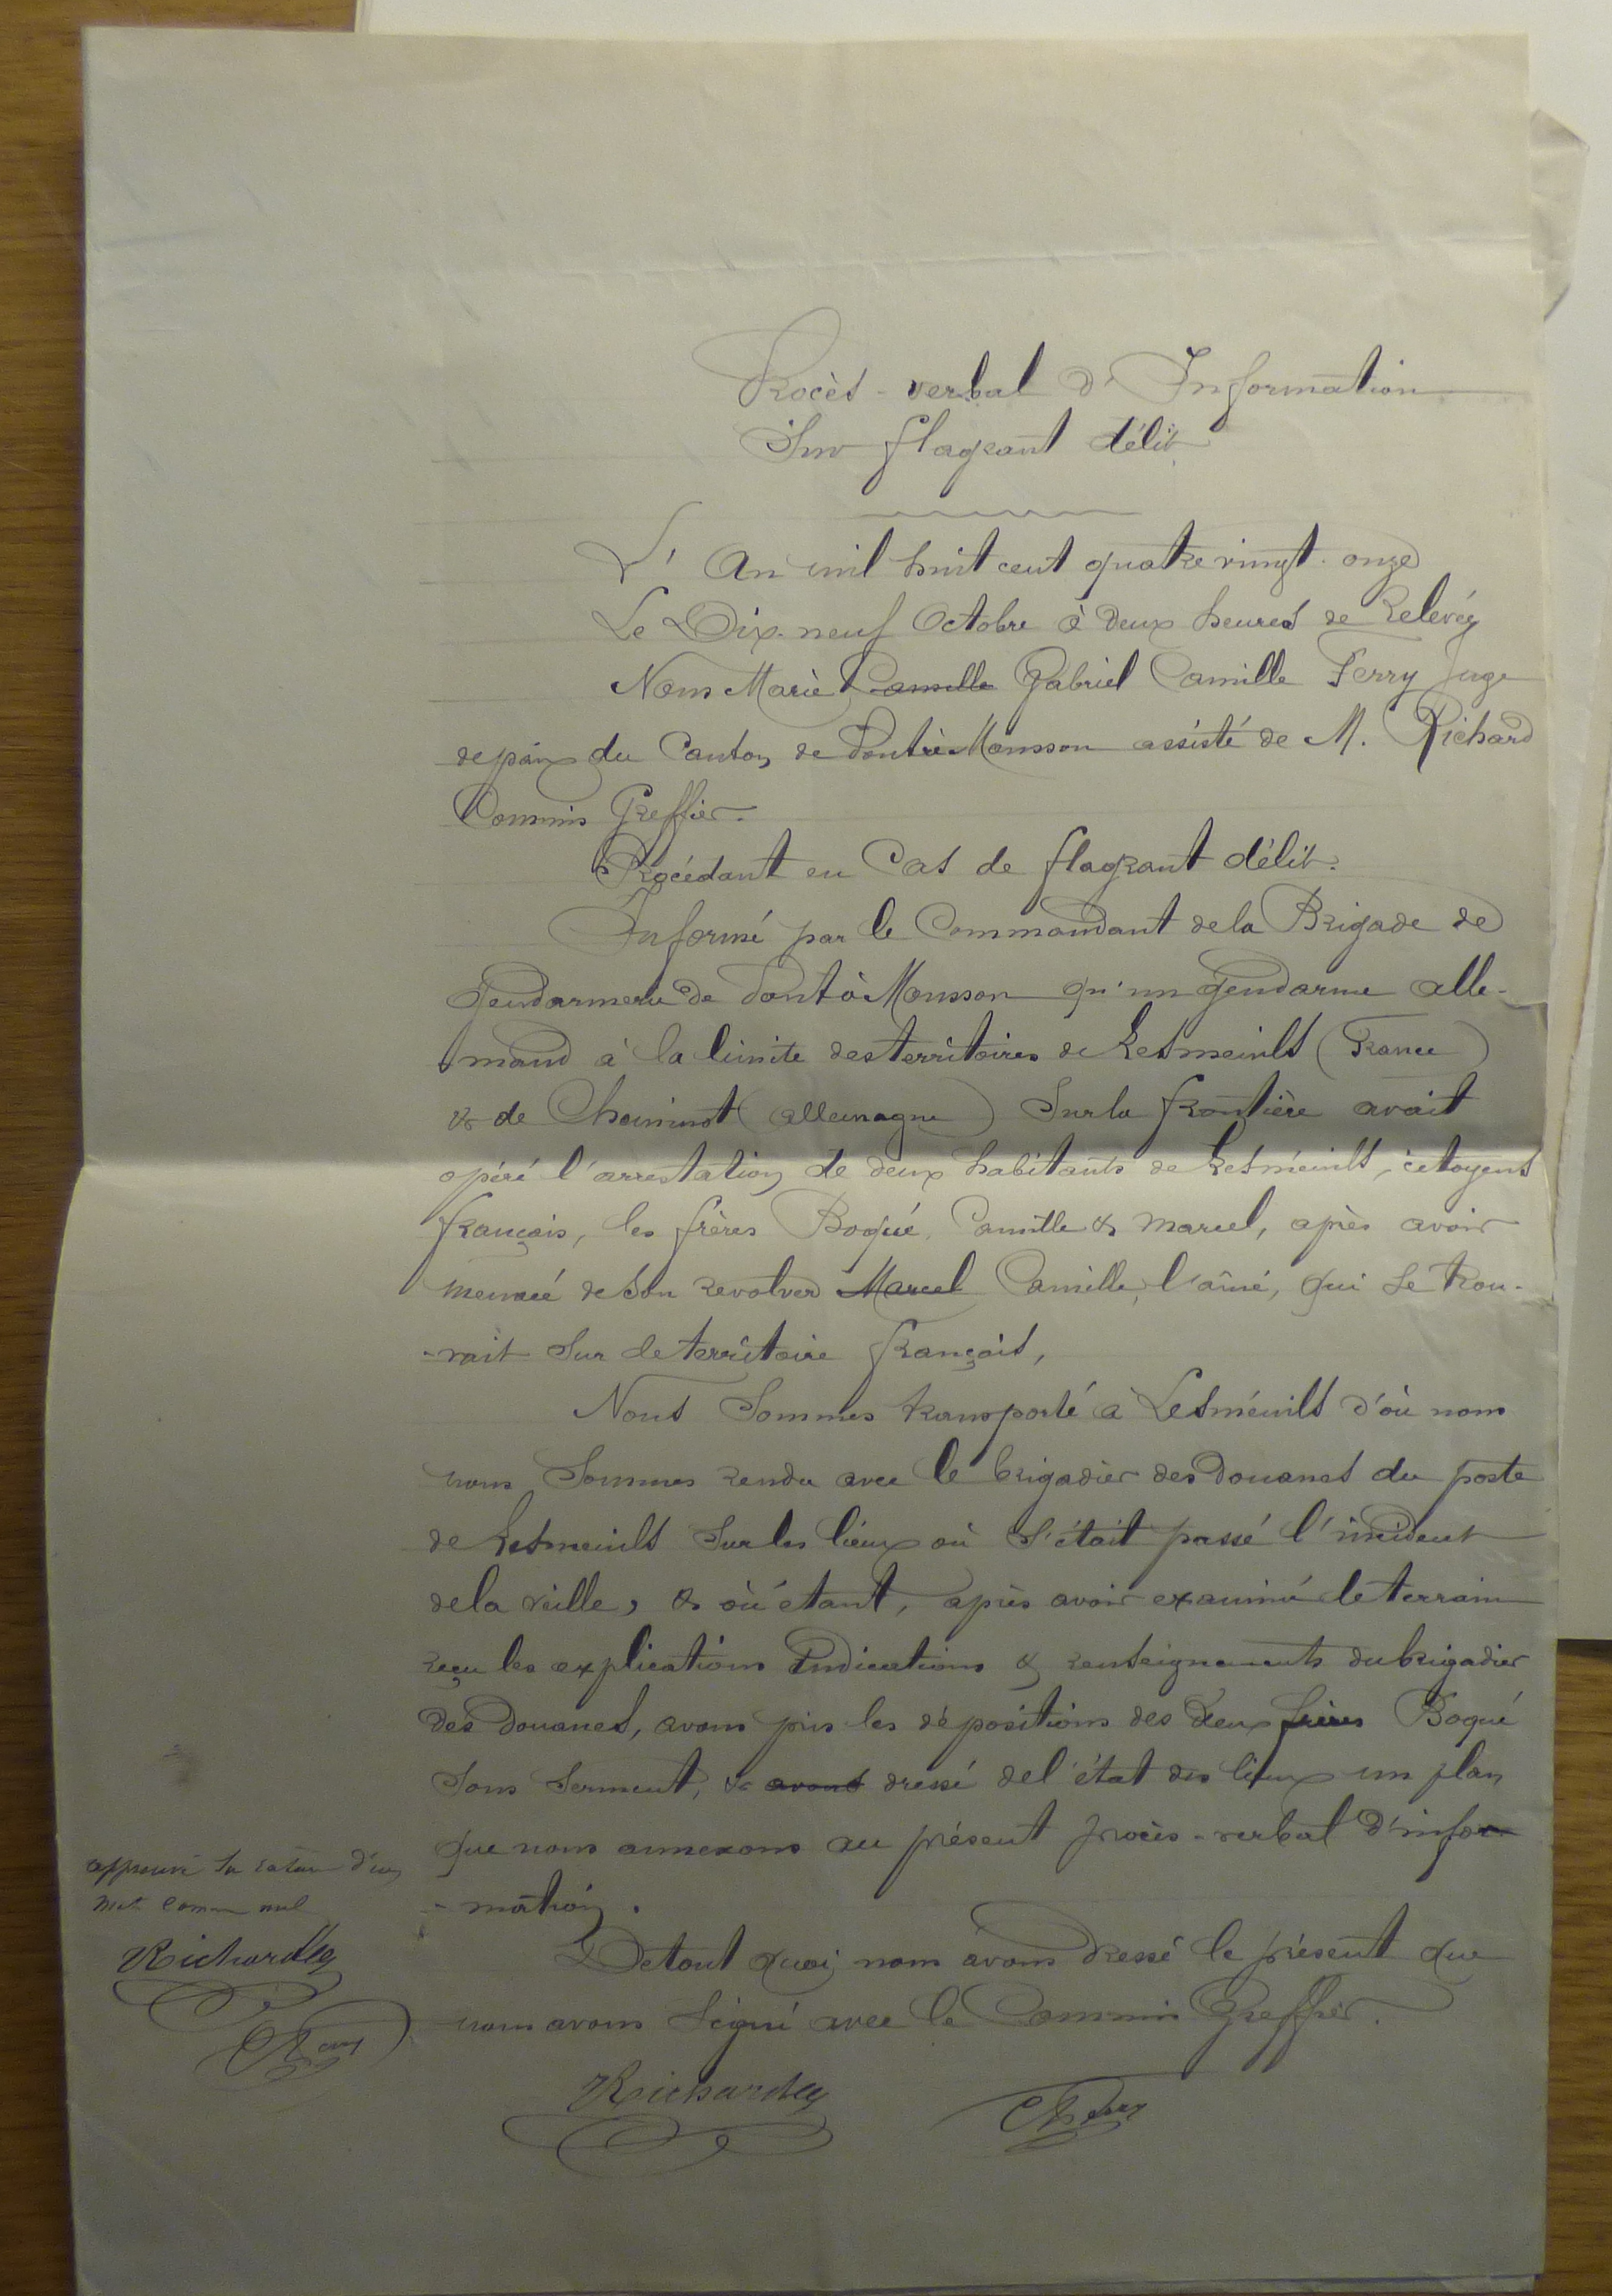 Procès-verbal d'Information
Sur flagrant délit
L'An mil huit cent quatre vingt-onze
Le Dix-neuf Octobre à deux heures de Relevée
Nous Marie Camille Gabriel Camille Ferry Juge
de paix du Canton de Pont à Mousson assisté de M. Richard
Commis Greffier.
Procédant en Cas de flagrant délit.
Informé par le Commandant de la Brigade de
Gendarmerie de Pont à Mousson qu'un gendarme alle-
mand à la limite des territoires de Lesmenils (France)
& de Cheminot (allemagne) Sur la frontière avait
opéré l'arrestation de deux habitants de Lesménils, citoyens
français, les frères Boqué, Camille & Marcel, après avoir
menacé de son revolver Marcel Camille, l'aîné, qui se trou-
-vait sur le territoire français,
Nous Sommes transporté à Lesménils d'où nous
nous Sommes rendu avec le brigadier des Douanes du poste
de Lesmenils Sur les lieux où S'était passé l'incident
de la veille, & où étant, après avoir examiné le terrain
reçu les explications Indications & renseignements du brigadier
des Douanes, avons pris les dépositions des deux frères Boqué
Sous Serment, & avons dressé de l'état des lieux un plan
que nous annexons au présent procès-verbal d'infor
-mation.
De tout quoi nous avons dressé le présent que
nous avons Signé avec le Commis Greffier.
approuvé la rature d'un
mot comme nul